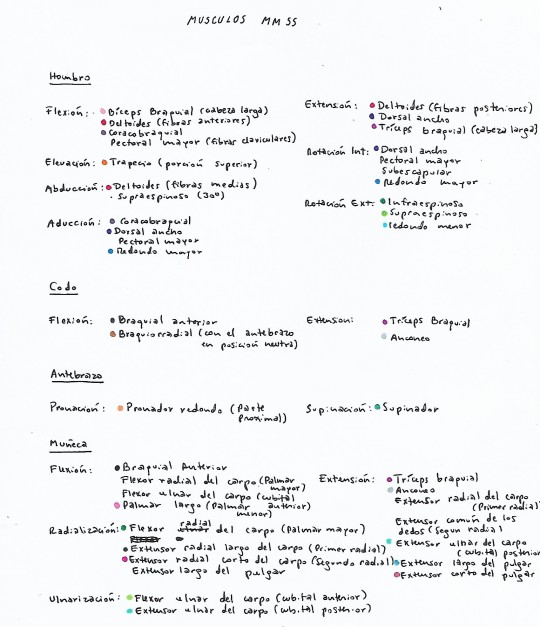 MUSCULOS MM SS
Hombro
Flexión: Bíceps Braquial (cabeza larga)
Deltoides (fibras anteriores)
Coracobraquial
Pectoral mayor (fibras claviculares)
Extensión: Deltoides (fibras posteriores)
Dorsal ancho
Tríceps braquial (cabeza larga)
Elevación: Trapecio (porción superior)
Rotación Int: Dorsal ancho
Pectoral mayor
Subescapular
Redondo mayor
Abducción: Deltoides (fibras medias)
. Supraespinoso (30º)
Rotación Ext: Infraespinoso
Supraespinoso
redondo menor
Aducción: Coracobraquial
Dorsal ancho
Pectoral mayor
Redondo mayor
Codo
Flexión: Braquial anterior
Braquiorradial (con el antebrazo
en posición neutra)
Extension: Tríceps Braquial
Anconeo
Antebrazo
Pronación: Pronador redondo (Parte
proximal)
Supinación: Supinador
Muñeca
Flexión: Braquial Anterior
Flexor radial del carpo (Palmar
mayor)
Flexor ulnar del carpo (cubital
anterior)
Palmar largo (Palmar
menor)
Extensión: Tríceps braquial
Anconeo
Extensor radial del carpo
(Primer radial)
Extensor común de los
dedos (Segun radial)
Extensor ulnar del carpo
(cubital posterior
Extensor largo del pulgar
Extensor corto del pulgar
Radialización: Flexor radial del carpo (Palmar mayor)
Extensor radial largo del carpo (Primer radial)
Extensor radial corto del carpo (Segundo radial)
Extensor largo del pulgar
Ulnarización: Flexor ulnar del carpo (cubital anterior)
Extensor ulnar del carpo (cubital posterior)